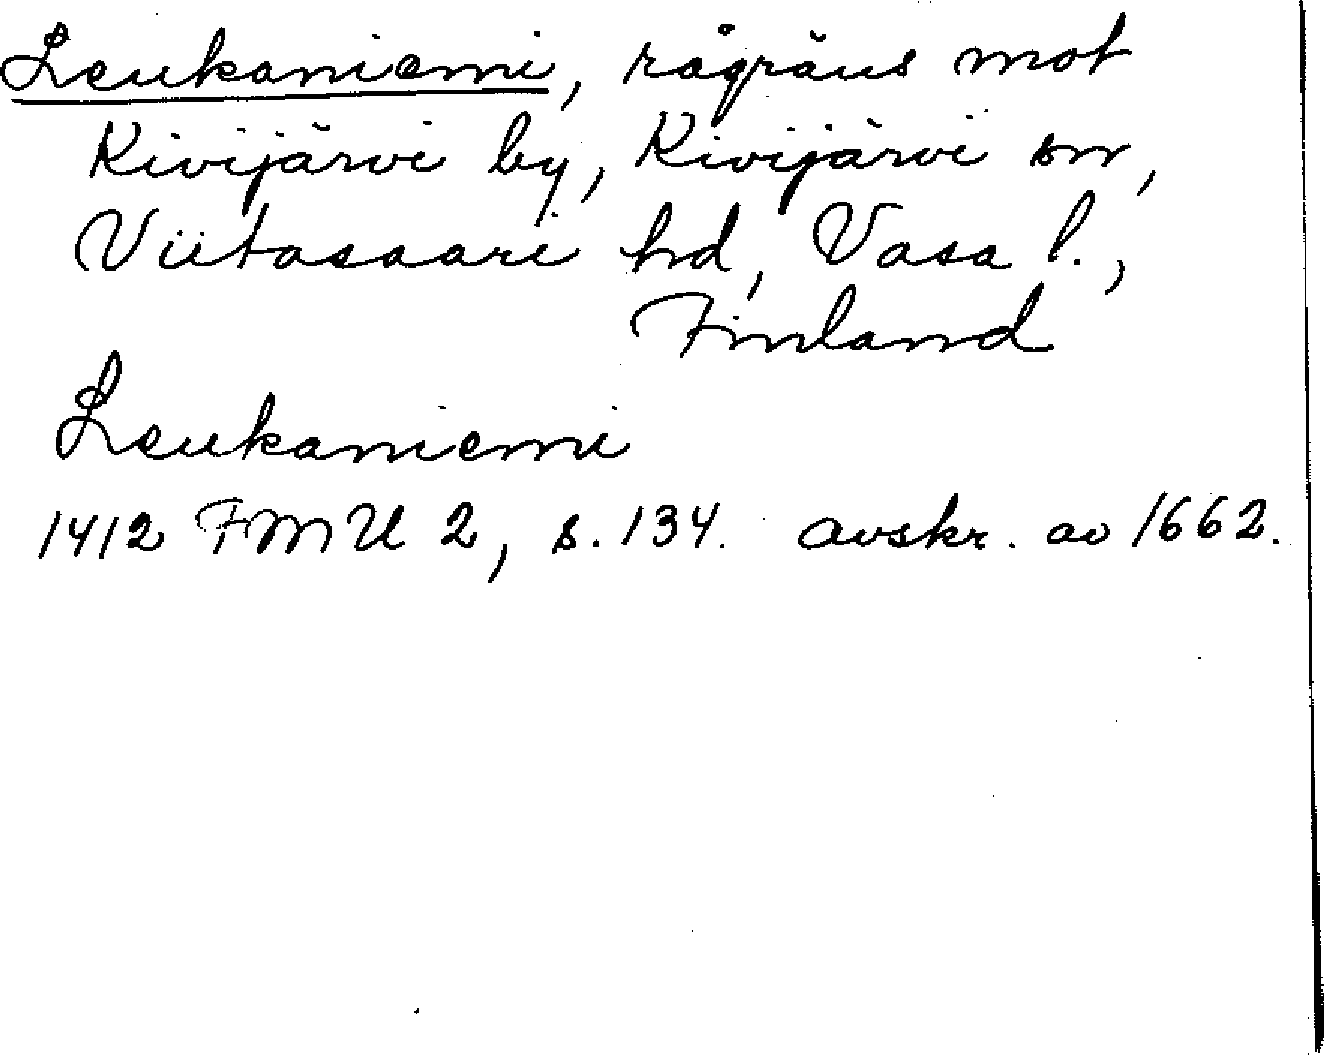 Leukaniemi, rågräns mot
Kivijärvi by, Kivijärvi sn,
Viitasaari hd, Vasa l.,
Finland
Leukaniemi
1412 FMU 2, s. 134. avskr. av 1662.